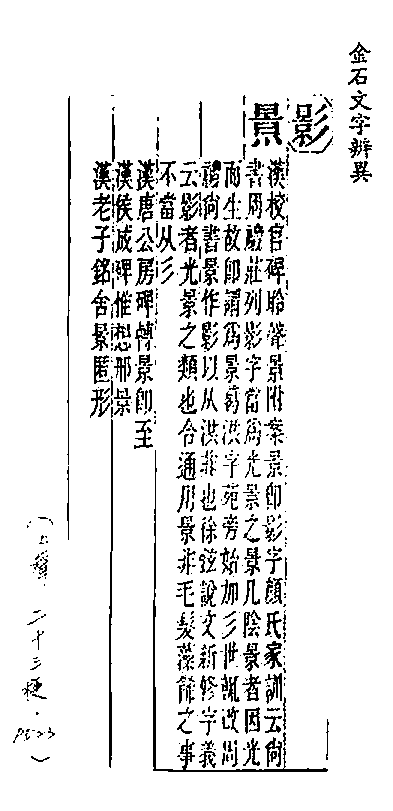 金石文字辨異
影
景
漢校官碑聆聲景附案景卽影字顏氏家訓云尙
書周禮莊列影字當爲光景之景凡陰景者因光
而生故卽謂爲景葛洪字苑旁始加彡世輒改周
禮尙書景作影以从洪非也徐弦說文新修字義
云影者光景之類也合通用景非毛髮藻飾之事
不當从彡
漢唐公房碑轉景卽至
漢侯成碑惟想邢景
漢老子銘舍景匿形
(上聲 二十三梗.
P523)